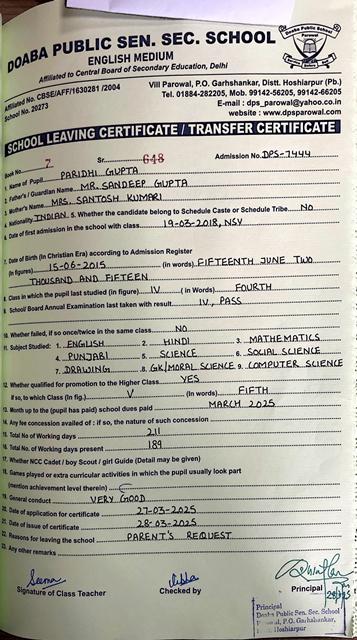 DOABA PUBLIC SEN. SEC. SCHOOL
ENGLISH MEDIUM
Affiliated to Central Board of Secondary Education, Delhi
Affiliated No. CBSE/AFF/1630281 /2004
School No. 20273
Vill Parowal, P.O. Garhshankar, Distt. Hoshiarpur (Pb.)
Tel. 01884-282205, Mob. 99142-56205, 99142-66205
E-mail : dps_parowal@yahoo.co.in
website : www.dpsparowal.com
SCHOOL LEAVING CERTIFICATE / TRANSFER CERTIFICATE
Book No. 2 Sr. 648 Admission No. DPS-7444
1. Name of Pupil PARIDHI GUPTA
2. Father's / Guardian Name MR. SANDEEP GUPTA
3. Mother's Name MRS. SANTOSH KUMARI
4. Nationality INDIAN 5. Whether the candidate belong to Schedule Caste or Schedule Tribe NO
6. Date of first admission in the school with class 19-03-2018, NSV
7. Date of Birth (In Christian Era) according to Admission Register
(In figures) 15-06-2015 (in words) FIFTEENTH JUNE TWO
THOUSAND AND FIFTEEN
8. Class in which the pupil last studied (in figure) IV ( in Words) FOURTH
9. School/ Board Annual Examination last taken with result IV, PASS
10. Whether failed, if so once/twice in the same class NO
11. Subject Studied: 1. ENGLISH 2. HINDI 3. MATHEMATICS
4. PUNJABI 5. SCIENCE 6. SOCIAL SCIENCE
7. DRAWING 8. GK/MORAL SCIENCE 9. COMPUTER SCIENCE
12. Whether qualified for promotion to the Higher Class YES
If so, to which Class (In fig.) V (In Words) FIFTH
13. Month up to the (pupil has paid) school dues paid MARCH 2025
14. Any fee concession availed of : if so, the nature of such concession
15. Total No of Working days 211
16. Total No. of Working days present 189
17. Whether NCC Cadet / boy Scout / girl Guide (Detail may be given)
18. Games played or extra curricular activities in which the pupil usually took part
(mention achievement level therein)
19. General conduct VERY GOOD
20. Date of application for certificate 27-03-2025
21. Date of issue of certificate 28-03-2025
22. Reasons for leaving the school PARENT'S REQUEST
23. Any other remarks
Seema
Signature of Class Teacher Checked by Principal
Principal
Doaba Public Sen. Sec. School
P.O. Garhshankar,
Hoshiarpur